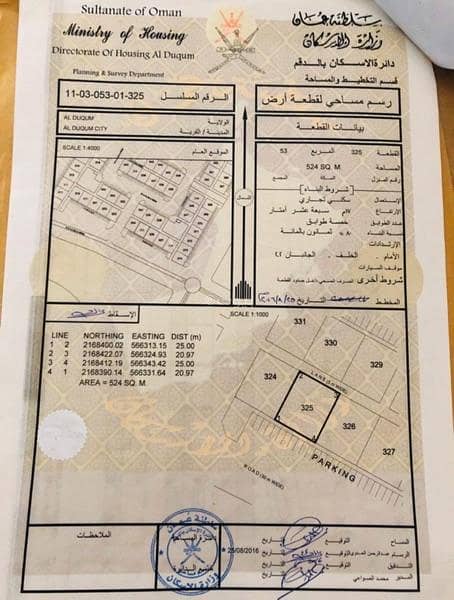 Sultanate of Oman
Ministry of Housing
Directorate Of Housing Al Duqum
Planning & Survey Department
سلطنة عمان
وزارة الإسكان
دائرة الاسكان بالدقم
قسم التخطيط والمساحة
11-03-053-01-325 الرقم المسلسل
رسم مساحي لقطعة أرض
AL DUQUM الولاية
AL DUQUM CITY المدينة / القرية
بيانات القطعة
SCALE 1:4000 الموقع العام
القطعة 325 المربع 53
المساحة 524 SQ. M.
رقم المنزل السكة المجمع
شروط البناء
الاستعمال سكني تجاري
الارتفاع سبعة عشر أمتار
عدد الطوابق خمسة طوابق
نسبة البناء ثمانون بالمائة
الإرتدادات
الأمام . الخلف. الجانبان
مواقف السيارات
شروط أخرى
المخطط التاريخ
الشمال
الإسقاط
LINE NORTHING EASTING DIST (m)
1 2 2168400.02 566313.15 25.00
2 3 2168422.07 566324.93 20.97
3 4 2168412.19 566343.42 25.00
4 1 2168390.14 566331.64 20.97
AREA = 524 SQ. M.
SCALE 1:1000
331
330
329
324
LANE
325
326
327
PARKING
ROAD
ملاحظات
المساح التوقيع التاريخ
الرسام التوقيع التاريخ 25/08/2016
التدقيق التوقيع التاريخ
المدير التوقيع التاريخ
سلطنة عمان
وزارة الإسكان